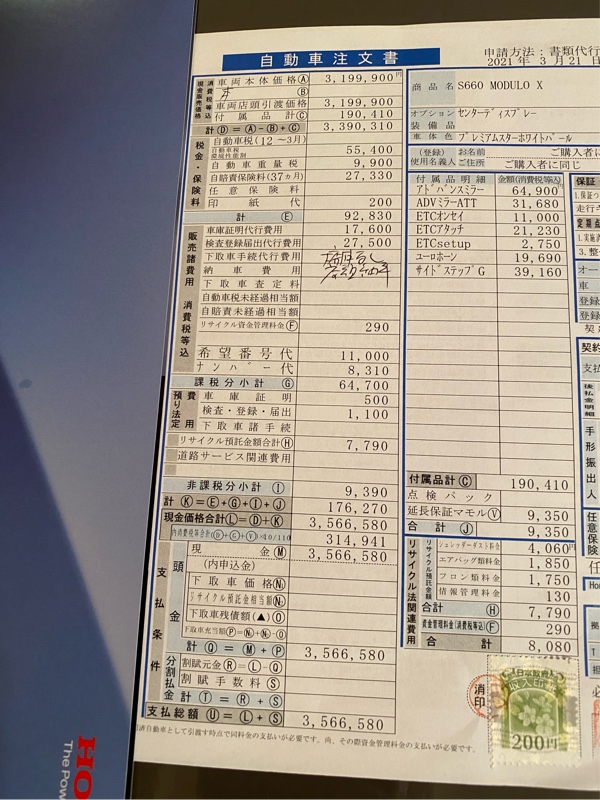 自動車注文書
申請方法:書類代行
2021年 3月21日
現金販売価格
消費税等込
車両本体価格Ⓐ 3,199,900円
Ⓑ
車両店頭引渡価格 3,199,900
付属品計Ⓒ 190,410
計(D=A-B+C) 3,390,310
税金・保険料
自動車税(12~3月)
自動車税環境性能割 55,400
自動車重量税 9,900
自賠責保険料(37ヵ月) 27,330
任意保険料
印紙代 200
計Ⓔ 92,830
販売諸費用 消費税等込
車庫証明代行費用 17,600
検査登録届出代行費用 27,500
下取車手続代行費用
納車費用
下取車査定料
自動車税未経過相当額
自賠責未経過相当額
リサイクル資金管理料金Ⓕ 290
希望番号代 11,000
ナンバー代 8,310
課税分小計Ⓖ 64,700
預り法定費用
車庫証明 500
検査・登録・届出 1,100
下取車諸手続
リサイクル預託金額合計Ⓗ 7,790
道路サービス関連費用
非課税分小計Ⓘ 9,390
計(K=E+G+I+J) 176,270
現金価格合計(L=D+K) 3,566,580
内消費税等合計(D+G+V)×10/110 314,941
支払条件
頭金
現金Ⓜ 3,566,580
(内申込金)
下取車価格Ⓝ
リサイクル預託金相当額
下取車残債額(▲)Ⓞ
下取車充当額
計(Q=M+P) 3,566,580
分割払金
割賦元金(R=L-Q)
割賦手数料Ⓢ
計(T=R+S)
支払総額(U=L+S) 3,566,580
済自動車として引渡す時点で同料金の支払いが必要です。尚、その際資金管理料金の支払いが必要です。
商品名 S660 MODULO X
オプション装備品 センターディスプレー
車体色 プレミアムスターホワイトパール
(登録)使用名義人
お名前 ご購入者に
ご住所 ご購入者に同じ
付属品明細 金額(消費税等込)
アドバンスミラー 64,900円
ADVミラーATT 31,680
ETCオンセイ 11,000
ETCアタッチ 21,230
ETCsetup 2,750
ユーロホーン 19,690
サイドステップG 39,160
付属品計Ⓒ 190,410
点検パック
延長保証マモルⓋ 9,350
合計Ⓙ 9,350
リサイクル法関連費用
リサイクル預託金額
シュレッダーダスト料金 4,060円
エアバッグ類料金 1,850
フロン類料金 1,750
情報管理料金 130
合計Ⓗ 7,790
資金管理料金(消費税等込)Ⓕ 290
合計 8,080
消印
収入印紙
200円
保証
1.保証
走行キ
定期点
1.実施
3.整
オー
車
登録
登録
契
契約
支払
後払金明細
手形振出人
任意保険
任
Hon
拠
T
担
HO
The Pow